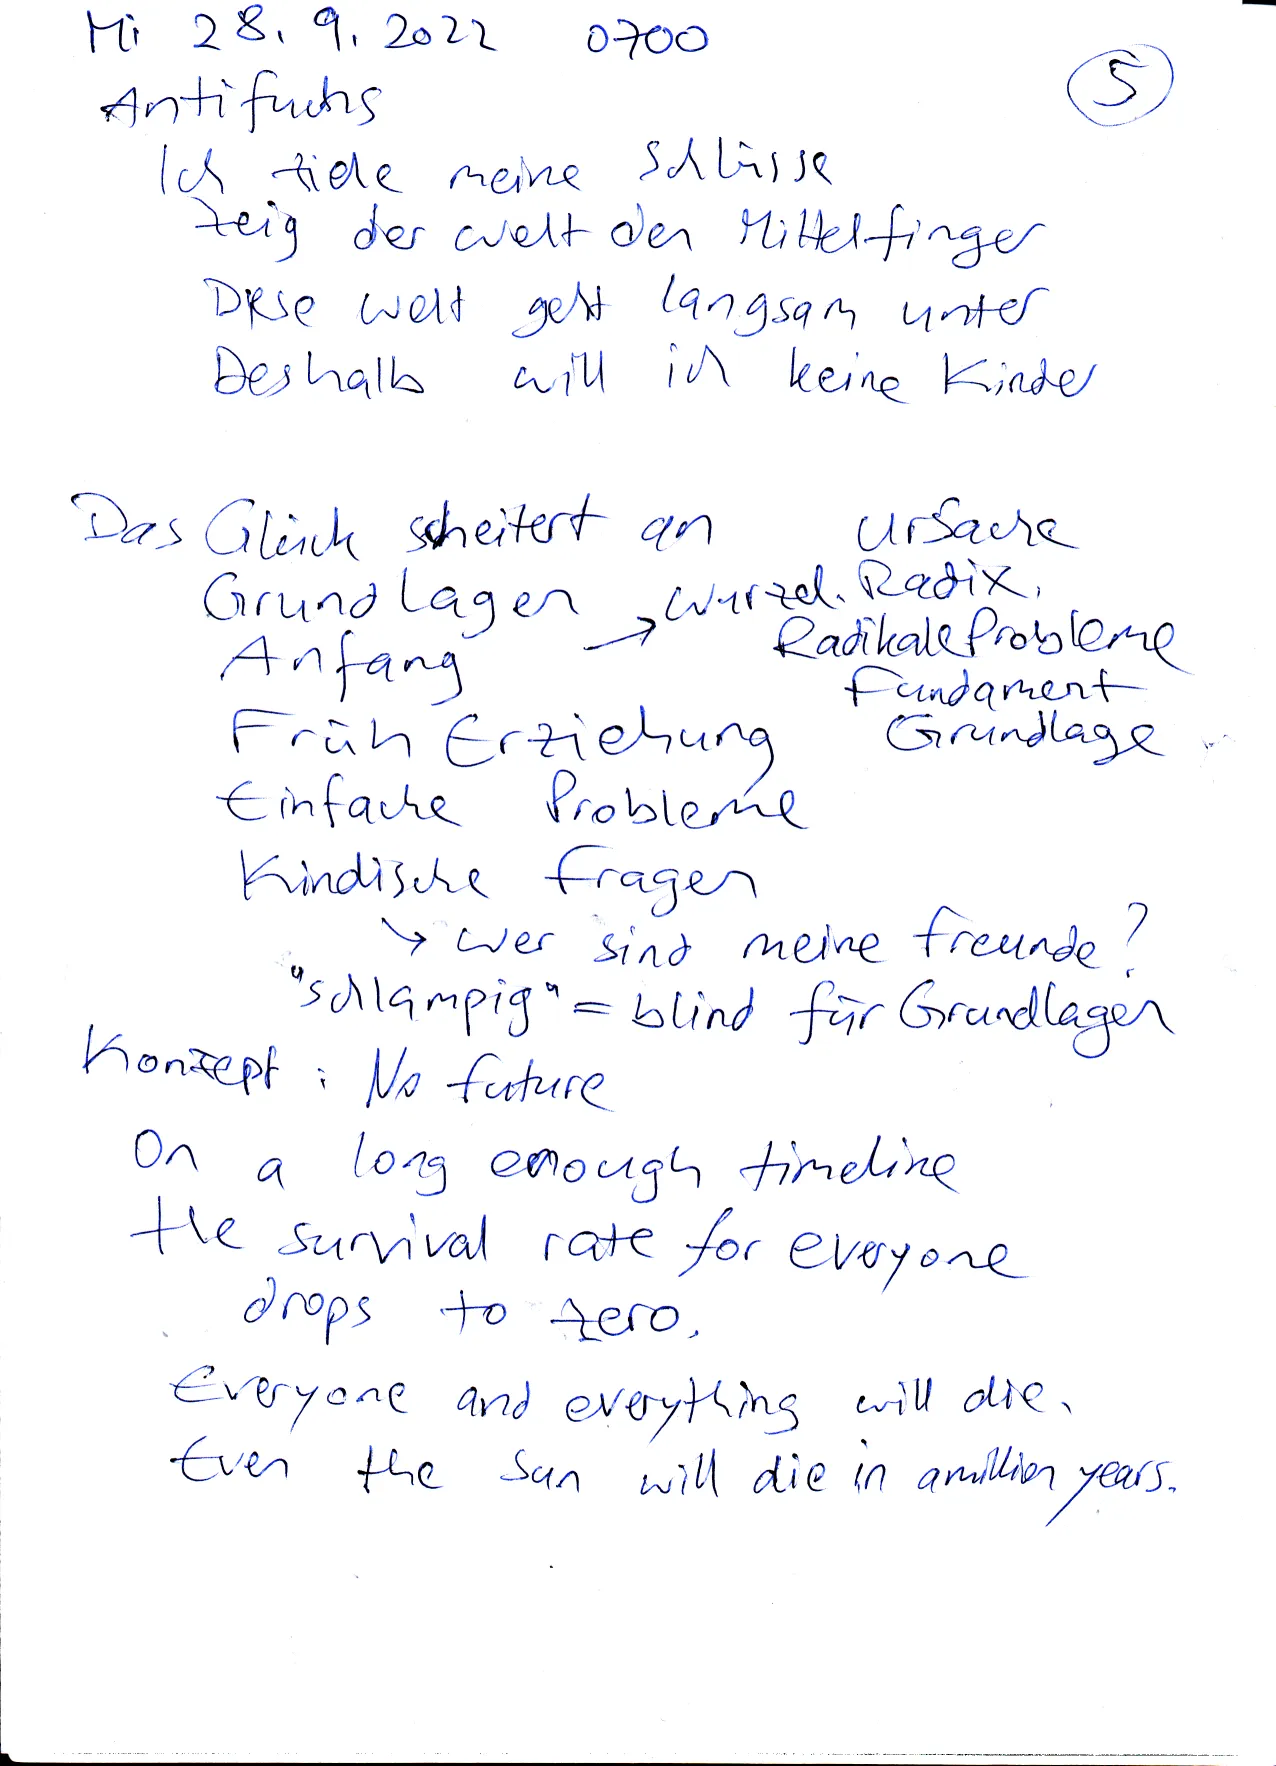 Mi 28. 9. 2022 0700
5
Antifuchs
Ich ziehe meine Schlüsse
Zeig der Welt den Mittelfinger
Diese Welt geht langsam unter
Deshalb will ich keine Kinder
Das Glück scheitert an
Grundlagen
Anfang
Früh Erziehung
Einfache Probleme
Kindische Fragen
Ursache
→ Wurzel. Radix.
Radikale Probleme
Fundament
Grundlage
↳ Wer sind meine Freunde?
"schlampig" = blind für Grundlagen
Konzept: No future
On a long enough timeline
the survival rate for everyone
drops to zero.
Everyone and everything will die.
Even the sun will die in a million years.